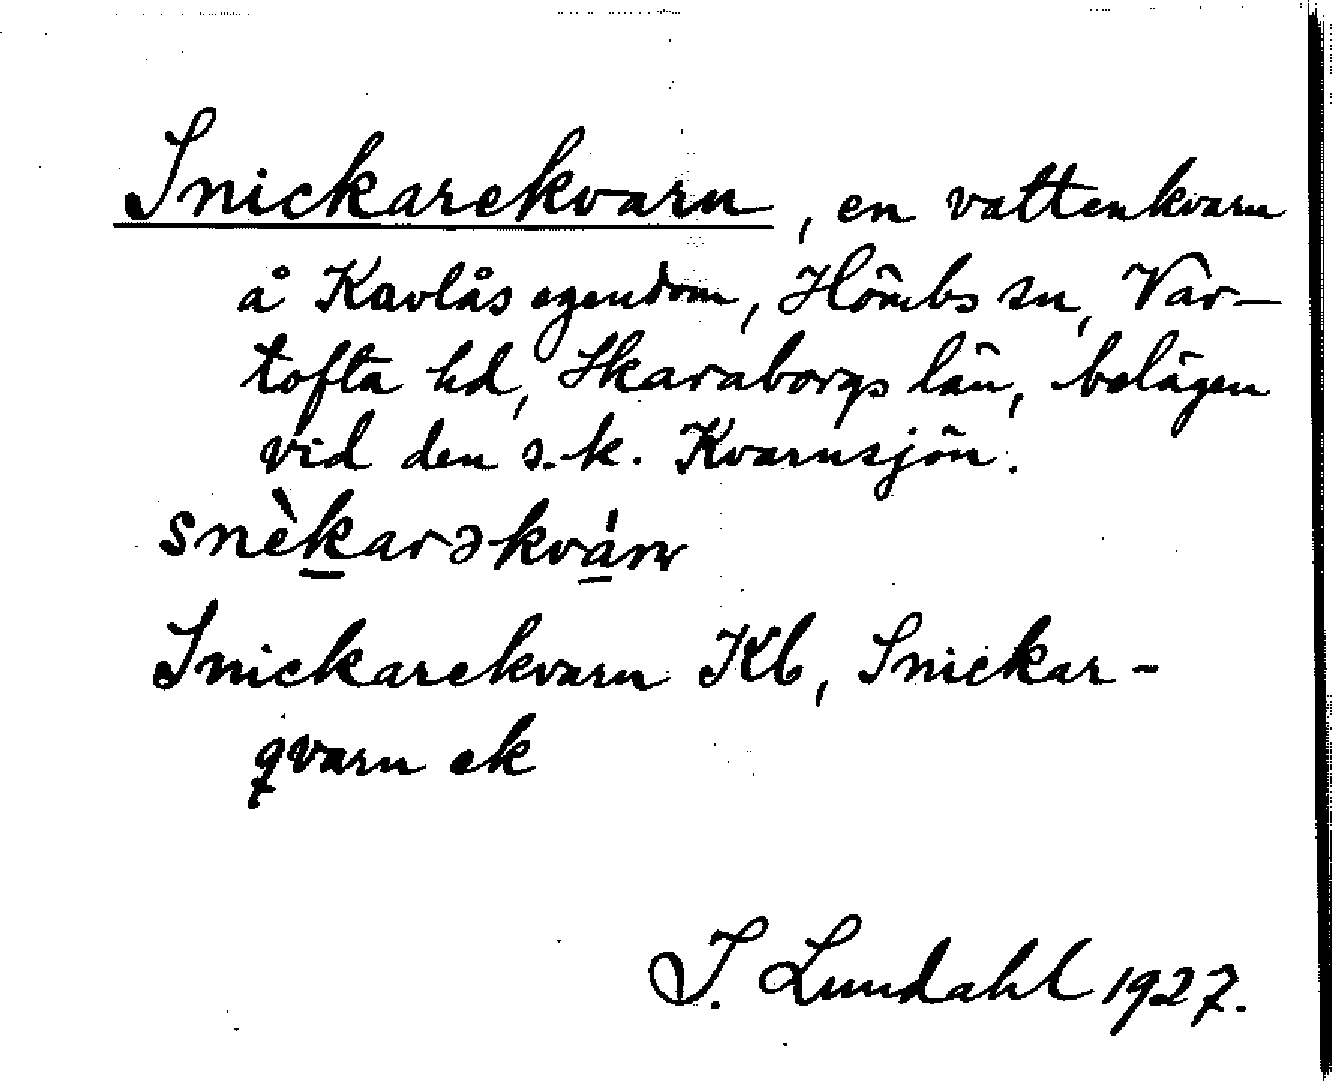 Snickarekvarn, en vattenkvarn
å Kavlås egendom, Hömbs sn, Var-
tofta hd, Skaraborgs län, belägen
vid den s.k. Kvarnsjön.
snèkarə-kvárn
Snickarekvarn Kb, Snickar-
qvarn ek
I. Lundahl 1927.